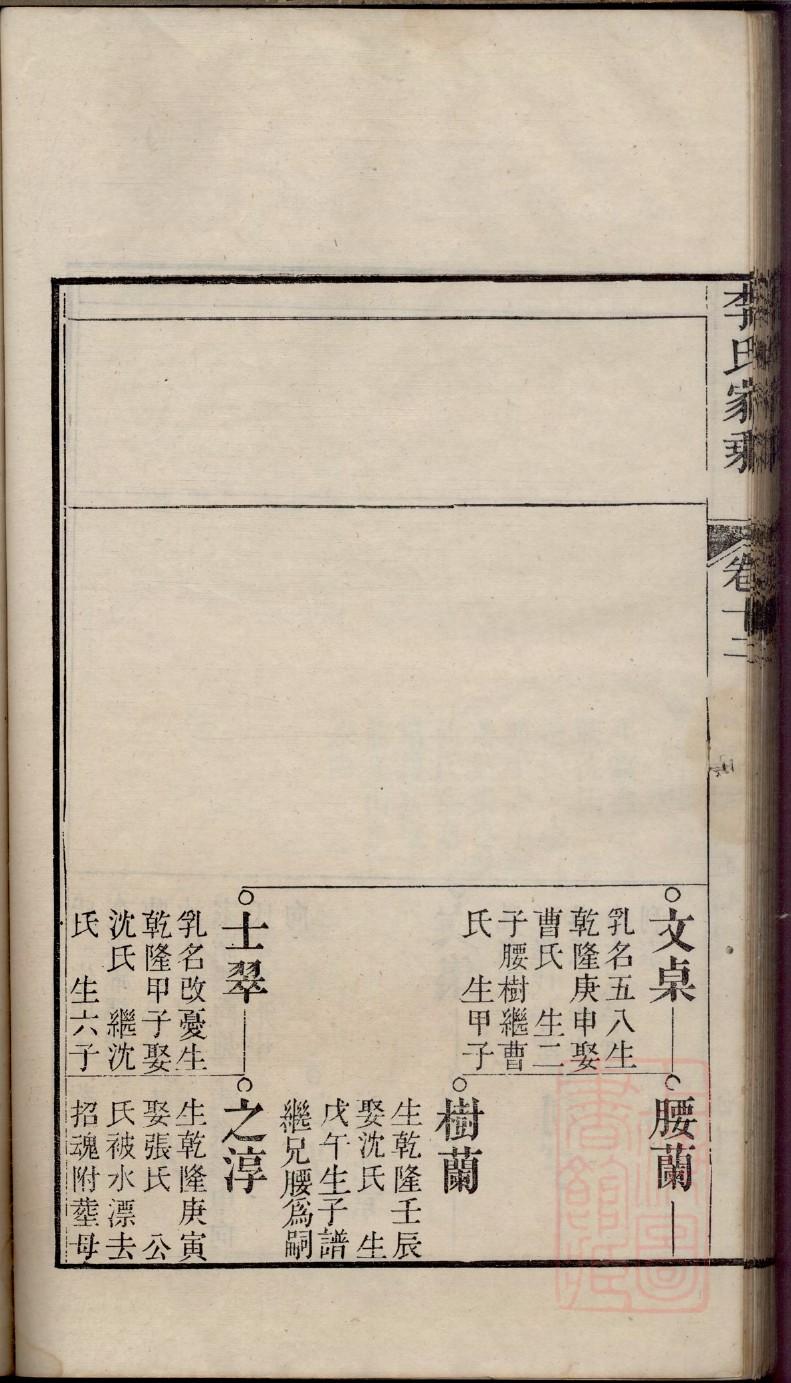 李氏家乘
卷十二
文桌
乳名五八生
乾隆庚申娶
曹氏 生二
子腰樹繼曹
氏 生甲子
腰蘭
樹蘭
生乾隆壬辰
娶沈氏 生
戊午生子譜
繼兄腰爲嗣
士翠
乳名改憂生
乾隆甲子娶
沈氏 繼沈
氏 生六子
之淳
生乾隆庚寅
娶張氏 公
氏被水漂去
招魂附塟母